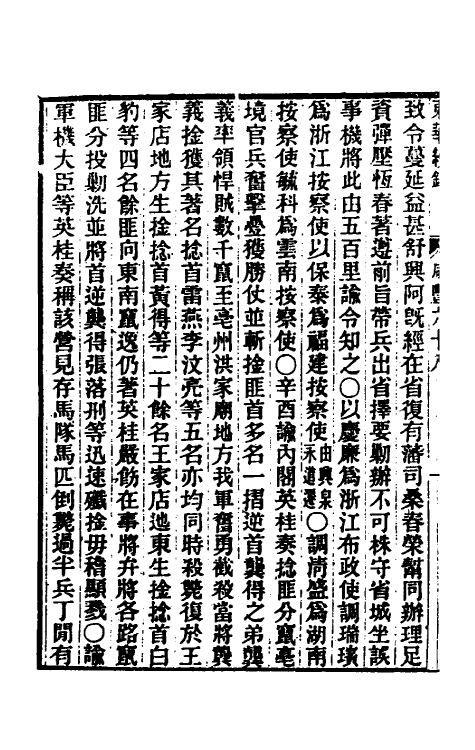 東華續錄 咸豐六十八
致令蔓延益甚舒興阿既經在省復有藩司桑春榮幫同辦理足
資彈壓恆春著遵前旨帶兵出省擇要勦辦不可株守省城坐誤
事機將此由五百里諭令知之○以慶廉為浙江布政使調瑞璸
為浙江按察使以保泰為福建按察使由興泉永道遷○調尚盛為湖南
按察使毓科為雲南按察使○辛酉諭內閣英桂奏捻匪分竄亳
境官兵奮擊疊獲勝仗並斬捦匪首多名一摺逆首龔得之弟龔
義率領悍賊數千竄至亳州洪家廟地方我軍奮勇截殺當將龔
義捦獲其著名捻首雷燕李汶亮等五名亦均同時殺斃復於王
家店地方生捦捻首黃得等二十餘名王家店迤東生捦捻首白
豹等四名餘匪向東南竄逸仍著英桂嚴飭在事將弁將各路竄
匪分投勦洗並將首逆龔得張落刑等迅速殲捦毋稽顯戮○諭
軍機大臣等英桂奏稱該營見存馬隊馬匹倒斃過半兵丁閒有